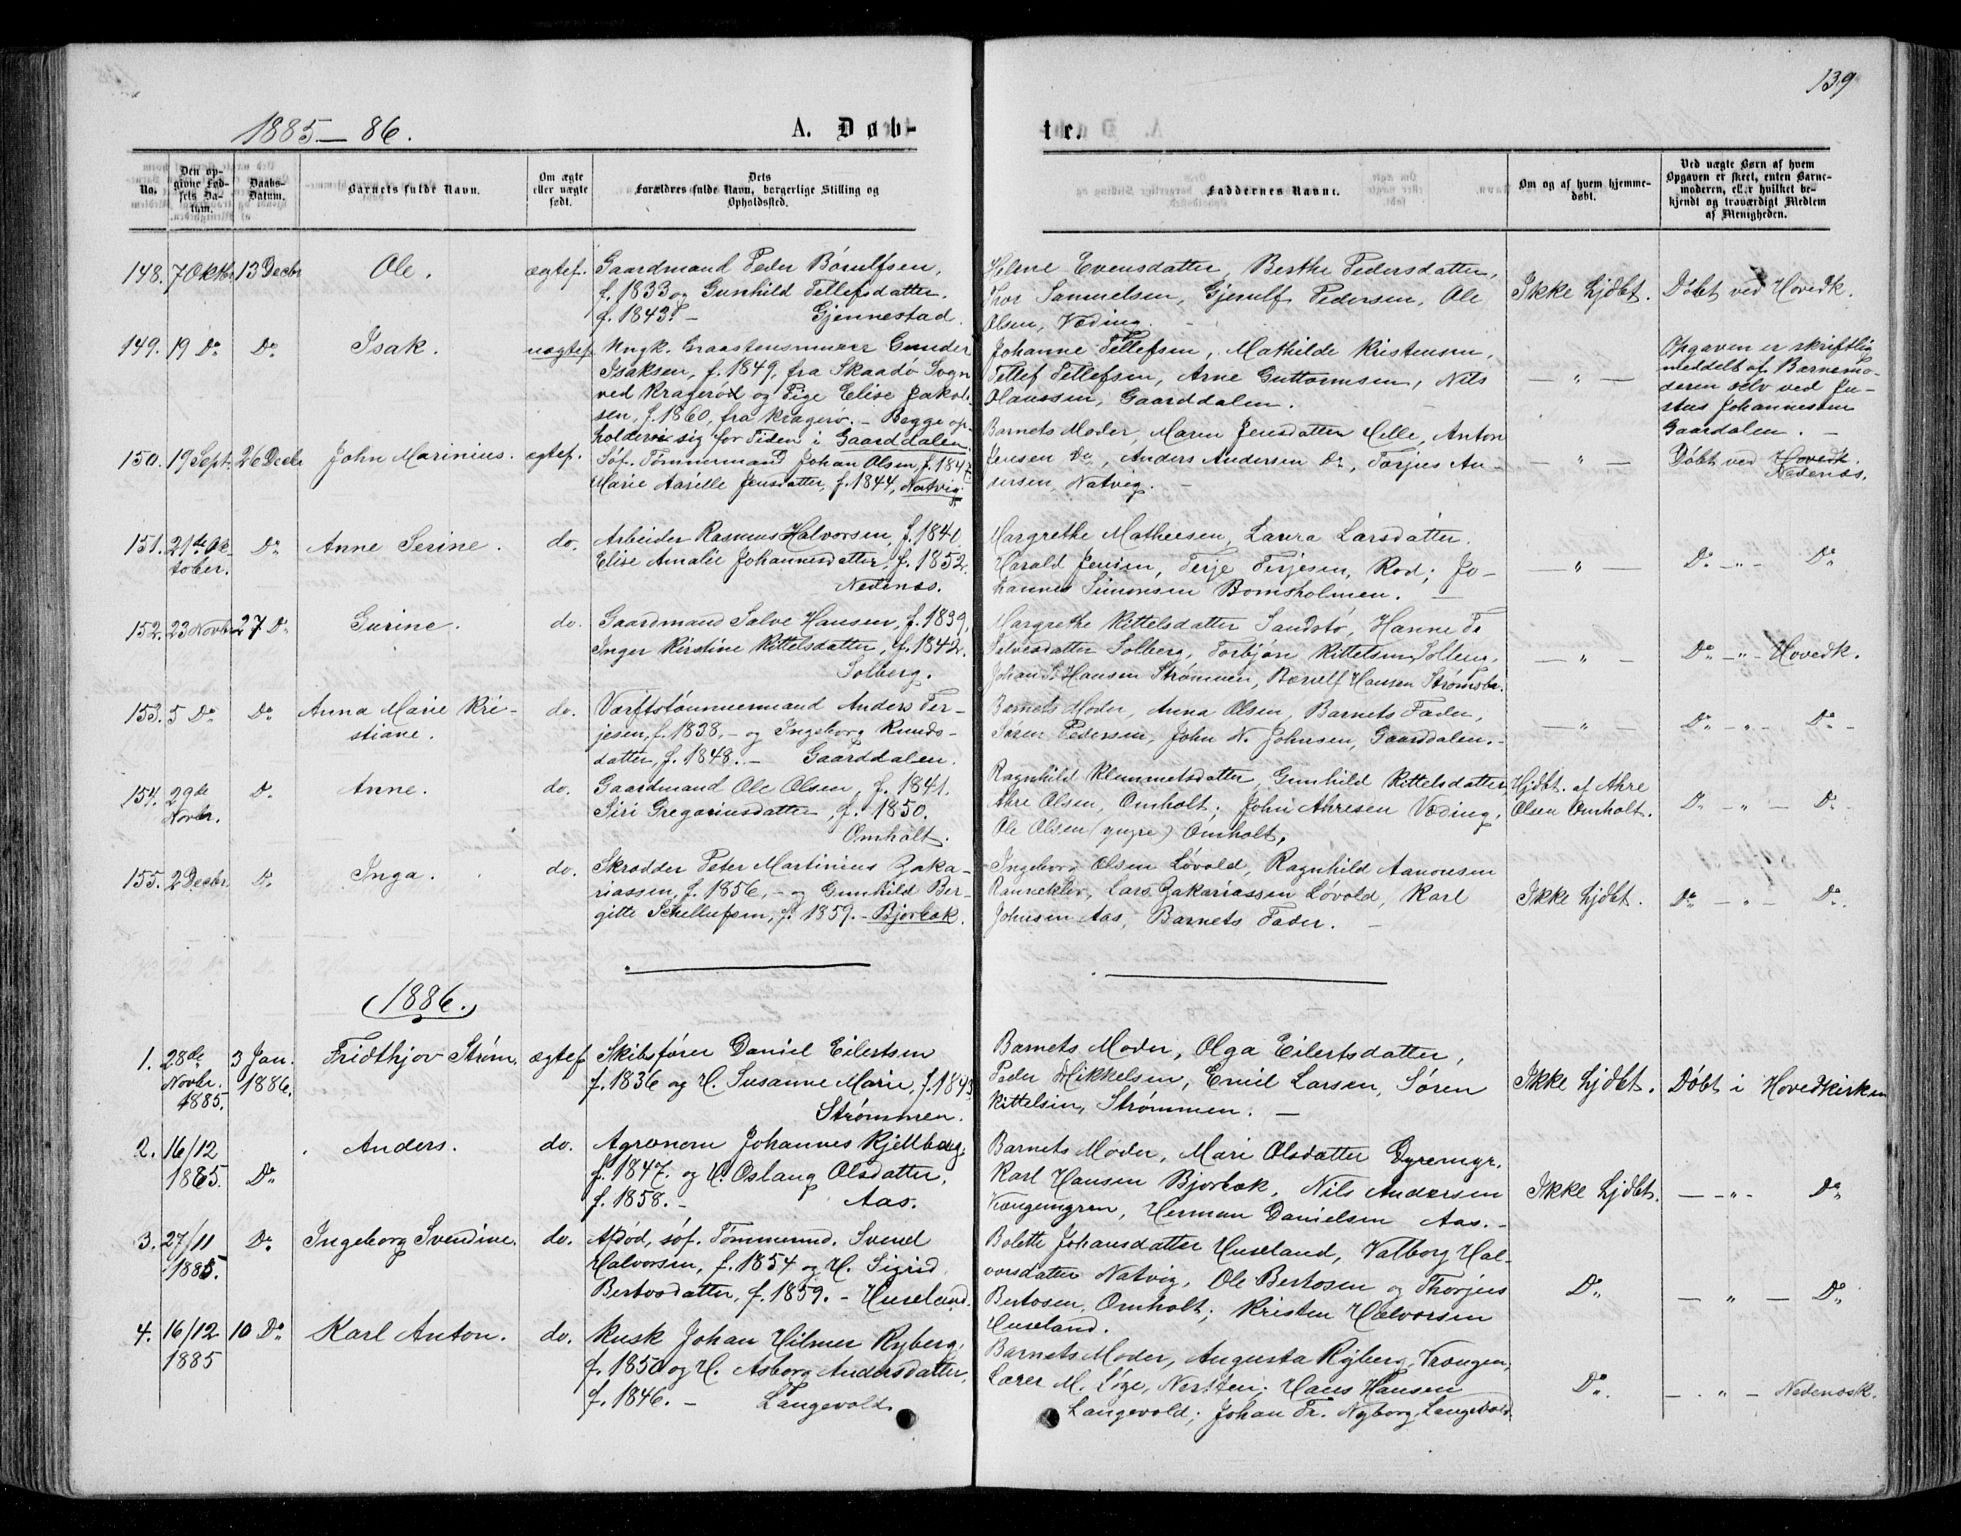 139
1885-86.
A. Døb-
te.
No.
Den opgivne Fødsels Datum.
Daabs-Datum.
Barnets fulde Navn.
Om ægte eller uægte født.
Dets Forældres fulde Navn, borgerlige Stilling og Opholdssted.
Faddernes Navne.
Om og af hvem hjemmedøbt.
Ved uægte Børn af hvem Opgaven er skeet, enten Barnemoderen, eller hvilket bekjendt og troværdigt Medlem af Menigheden.
148. 7 Oktbr. 13 Decbr Ole. ægtef.
Gaardmand Peder Børulfsen,
f. 1833 og Gunhild Tellefsdatter.
f. 1843. – Gjennestad.
Helene Evensdatter, Berthe Pedersdatter,
Thor Samuelsen, Gjerulf Pedersen, Ole
Olsen, Væding.
Ikke hjdbt. Døbt ved Hovedk.
149. 19 Do Do Isak. uægtef.
Ungk. Graastensmurer Gunder
Isaksen, f. 1849, fra Skaadø Sogn
ved Kragerød og Pige Elise Jakob-
sen, f. 1860, fra Kragerø. – Begge op-
holder sig for Tiden i Gaarddalen
Johanne Tellefsen, Mathilde Kristensen,
Tellef Tellefsen, Arne Guttormsen, Nils
Olaussen, Gaarddalen.
— " —
Opgaven er skriftlig
meddelt af Barnemo-
deren selv ved Ju-
stus Johannesen
Gaardalen. –
150. 19 Sept. 26 Decbr John Marinius. ægtef.
Søf. Tømmermand Johan Olsen f. 1847,
Marie Aarelle Jensdatter, f. 1844, Natvig.
Barnets Moder, Maren Jensdatter Helle, Anton
Jensen Do, Anders Andersen Do, Tarjus An-
dersen, Natvig. –
— " —
Døbt ved Hovedk.
Nedenæs.
151. 21de Ok-
tober. Do Anne Serine. do.
Arbeider Rasmus Halvorsen, f. 1840.
Elise Amalie Johannesdatter, f. 1852.
Nedenæs.
Margrethe Mathesen, Laura Larsdatter.
Harald Jensen, Terje Terjesen, Rod; Jo-
hannes Simonsen Bomsholmen. –
— " — Do – " – Do
152. 23 Novbr 27 Do Gurine. do.
Gaardmand Salve Hansen, f. 1839,
Inger Kirstine Kittelsdatter, f. 1842.
Solberg.
Margrethe Kittelsdatter Sandstø, Hanne Fr.
Salvesdatter Solberg, Torbjørn Kittelsen Solberg,
Johan S. Hansen Strømmen, Børulf Hansen Strømsbr.
— " — Do – " – Hovedk.
153. 5 Do Do Anna Marie Kri-
stiane. do.
Værftstømmermand Anders Ter-
jesen, f. 1838, – og Ingeborg Knuds-
datter, f. 1848. – Gaarddalen.
Barnets Moder, Anna Olsen, Barnets Fader,
Søren Pedersen, John N. Johnsen, Gaarddalen. –
— " — Do – " – Do –
154. 29de
Novbr. Do Anne. do.
Gaardmand Ole Olsen, f. 1841.
Siri Gregoriusdatter, f. 1850.
Omholt.
Ragnhild Klemmetsdatter, Gunhild Kittelsdatter
Ahre Olsen, Omholt; John Ahresen Væding,
Ole Olsen (yngre) Omholt,
Hjdbt. af Ahre
Olsen Omholt. Do – " – Do
155. 2 Decbr. Do Inga. do.
Skrædder Peter Martinius Zaka-
riassen, f. 1856, – og Gunhild Ber-
gitte Schellefsen, f. 1859. – Bjorbæk.
Ingeborg Olsen Løvold, Ragnhild Aanonsen
Ranneklev, Lars Zakariassen Løvold, Karl
Johnsen Aas, Barnets Fader. –
Ikke hjdbt. Do – " – Do.
(1886.)
1. 28de
Novbr.
1885. 3 Jan.
1886. Fridthjov Strøm. ægtef.
Skibsfører Daniel Eilertsen
f. 1836 og H. Susanne Marie, f. 1843.
Strømmen.
Barnets Moder, Olga Eilertsdatter,
Peder Mikkelsen, Emil Larsen, Søren
Kittelsen, Strømmen. –
Ikke hjdbt. Døbt i Hovedkirken
2. 16/12
1885. Do Anders. do.
Agronom Johannes Kjellberg,
f. 1847. og H. Oslaug Olsdatter,
f. 1858. – Aas.
Barnets Moder, Mari Olsdatter Dyremyr,
Karl Hansen Bjorbæk, Nils Andersen
Kongemgren, Herman Danielsen Aas. –
Ikke hjdbt. — " – Do
3. 27/11
1885. Do Ingeborg Svendine. do.
Afdød, søf. Tømmermd. Svend
Halvorsen, f. 1854 og H. Sigrid
Bertosdatter, f. 1859. – Huseland.
Bolette Johansdatter Huseland, Valborg Hal-
vorsdatter Natvig, Ole Bertosen og Thorjus
Bertosen, Omholt; Kristen Halvorsen
Huseland.
Do. — " — Do
4. 16/12
1885 10 Do Karl Anton. do.
Kusk Johan Hilmer Ryberg,
f. 1850 og H. Asborg Andersdatter,
f. 1846. – Langevold.
Barnets Moder, Augusta Ryberg, Trongen,
Lærer M. Løge, Nersten; Hans Hansen
Langevold; Johan Fr. Nyborg, Langevold.
Do. — " – Nedenæsk.